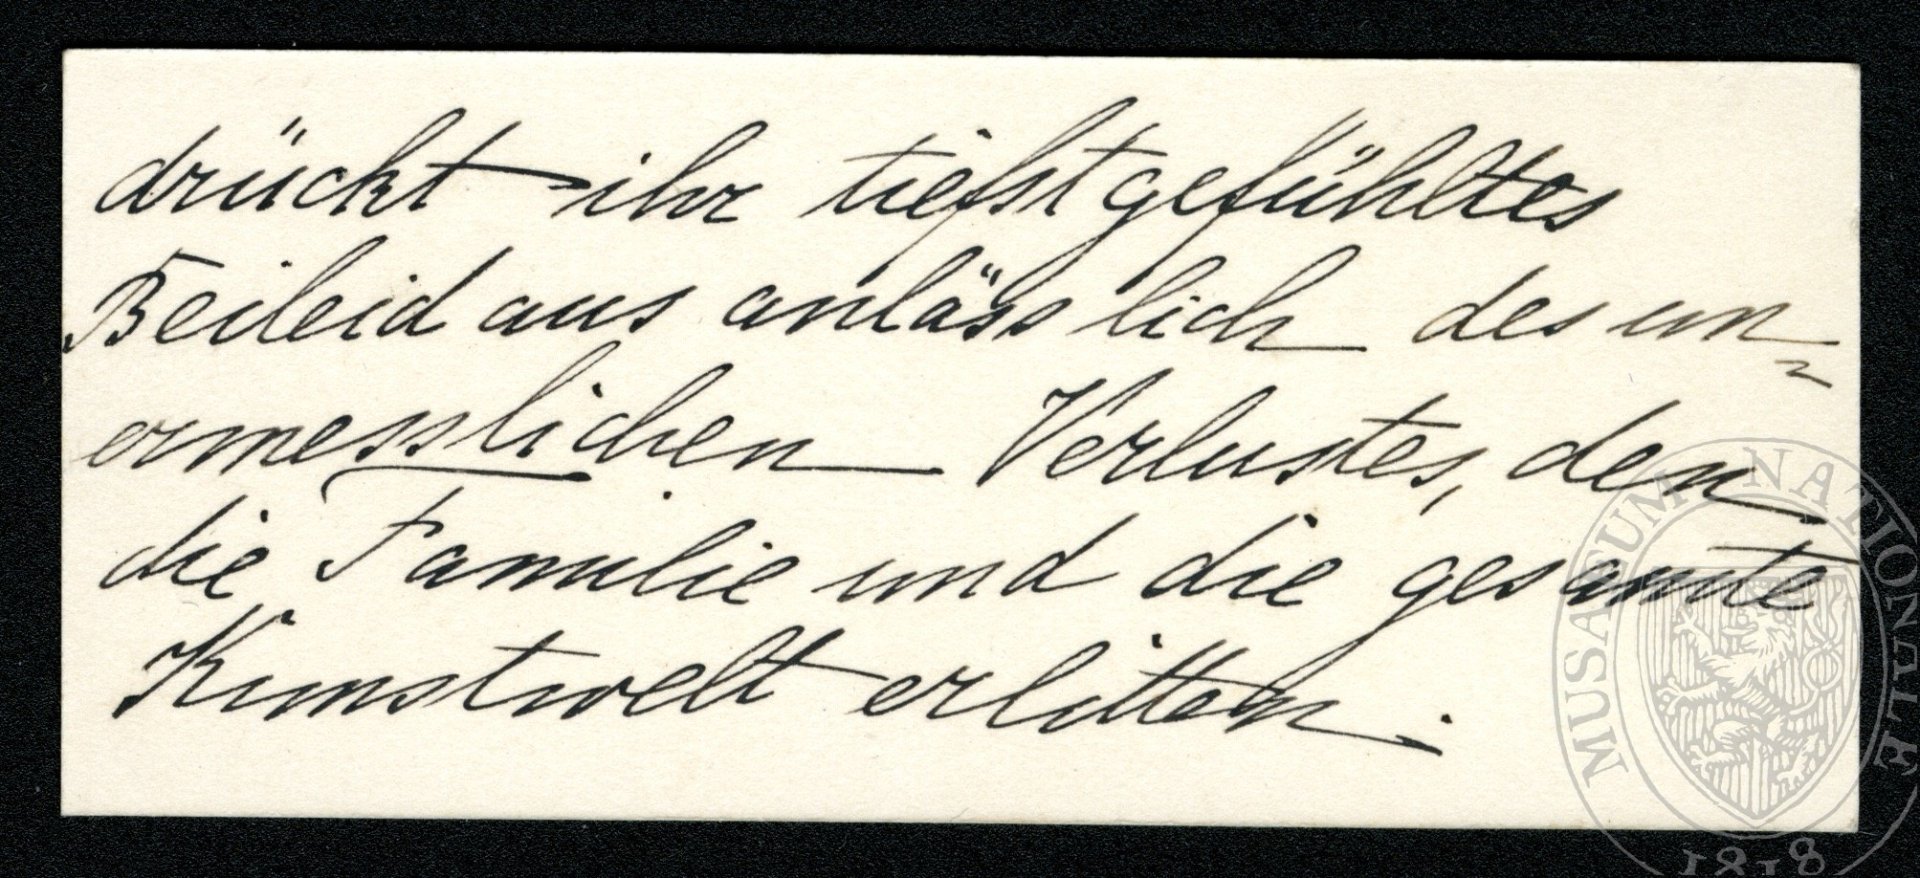 drückt ihr tiefstgefühltes
Beileid aus anlässlich des un-
ermesslichen Verlustes, den
die Familie und die gesamte
Kunstwelt erlitten.
MUSAEUM NATIONALE
1818